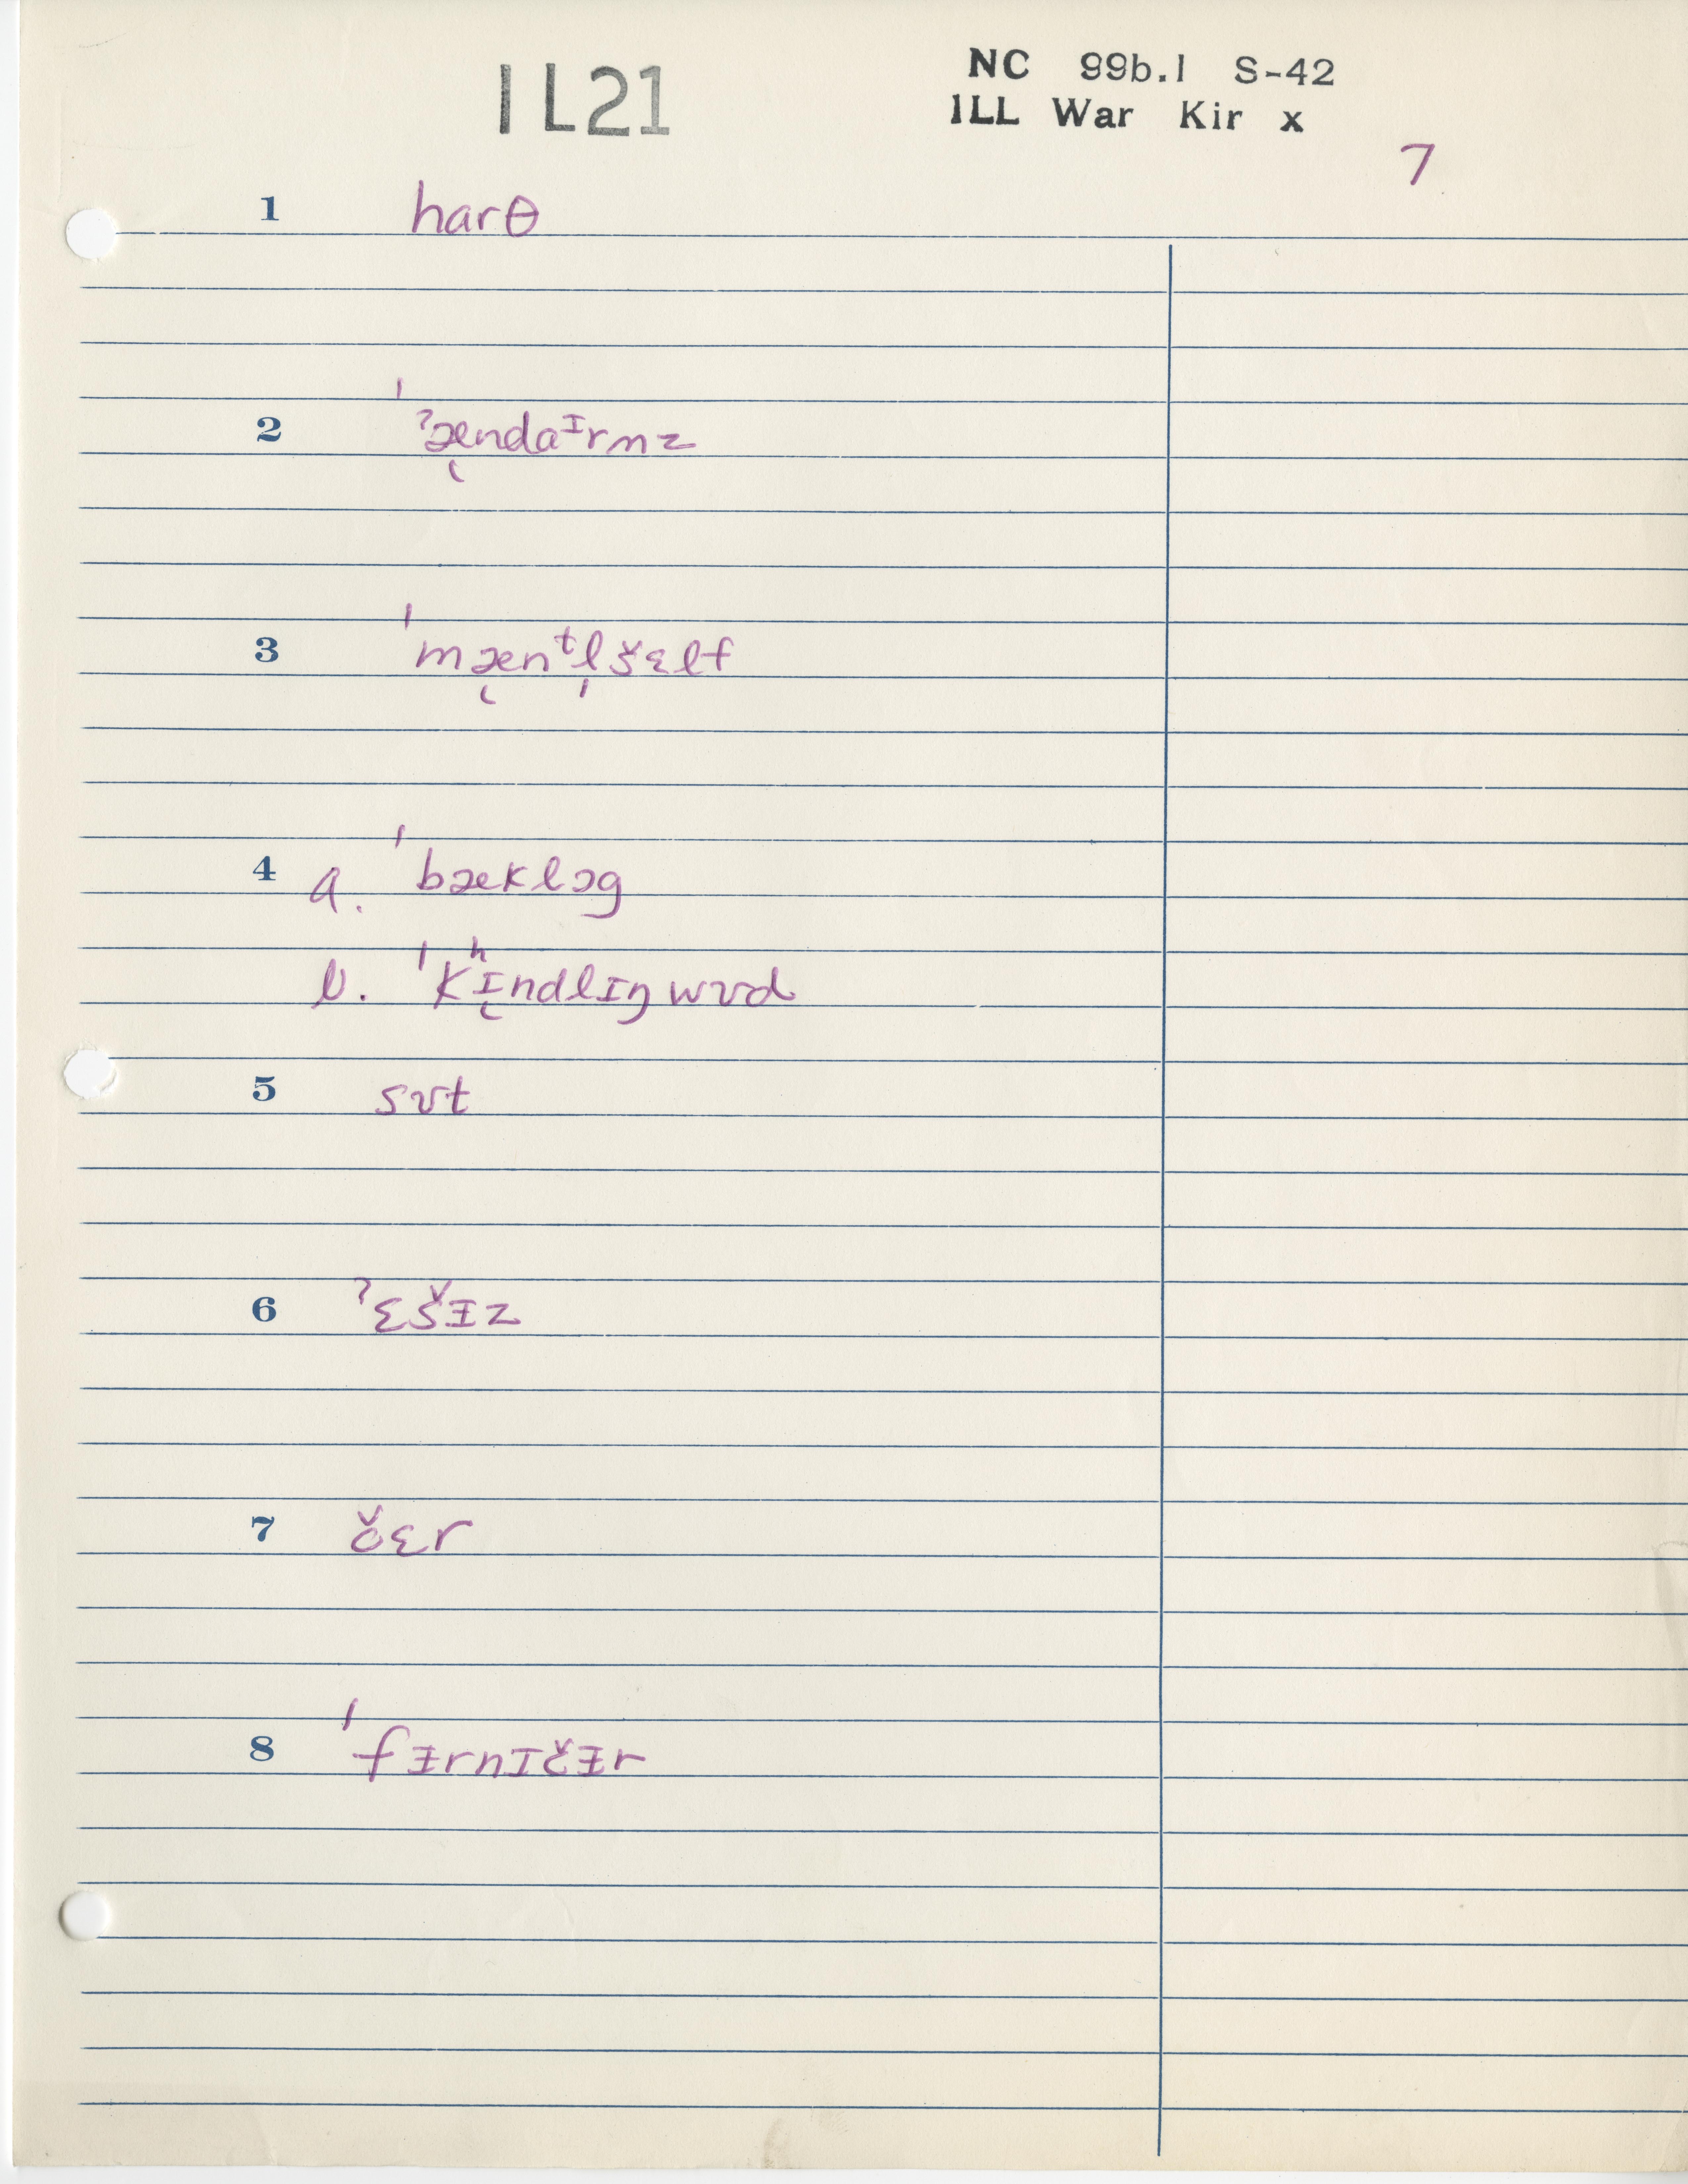 IL21
NC 99b.1 S-42
ILL War Kir x
7
1 harθ
2 ˈˀæ̨ndaᶦrnz
3 ˈmæ̨nᵗl̩šɛlf
4 a. ˈbæklɔg
b. ˈkʰɪ̨ndlɪŋwʊd
5 sʊt
6 ˀɛšɨz
7 čɛr
8 ˈfɨrnɪčɨr